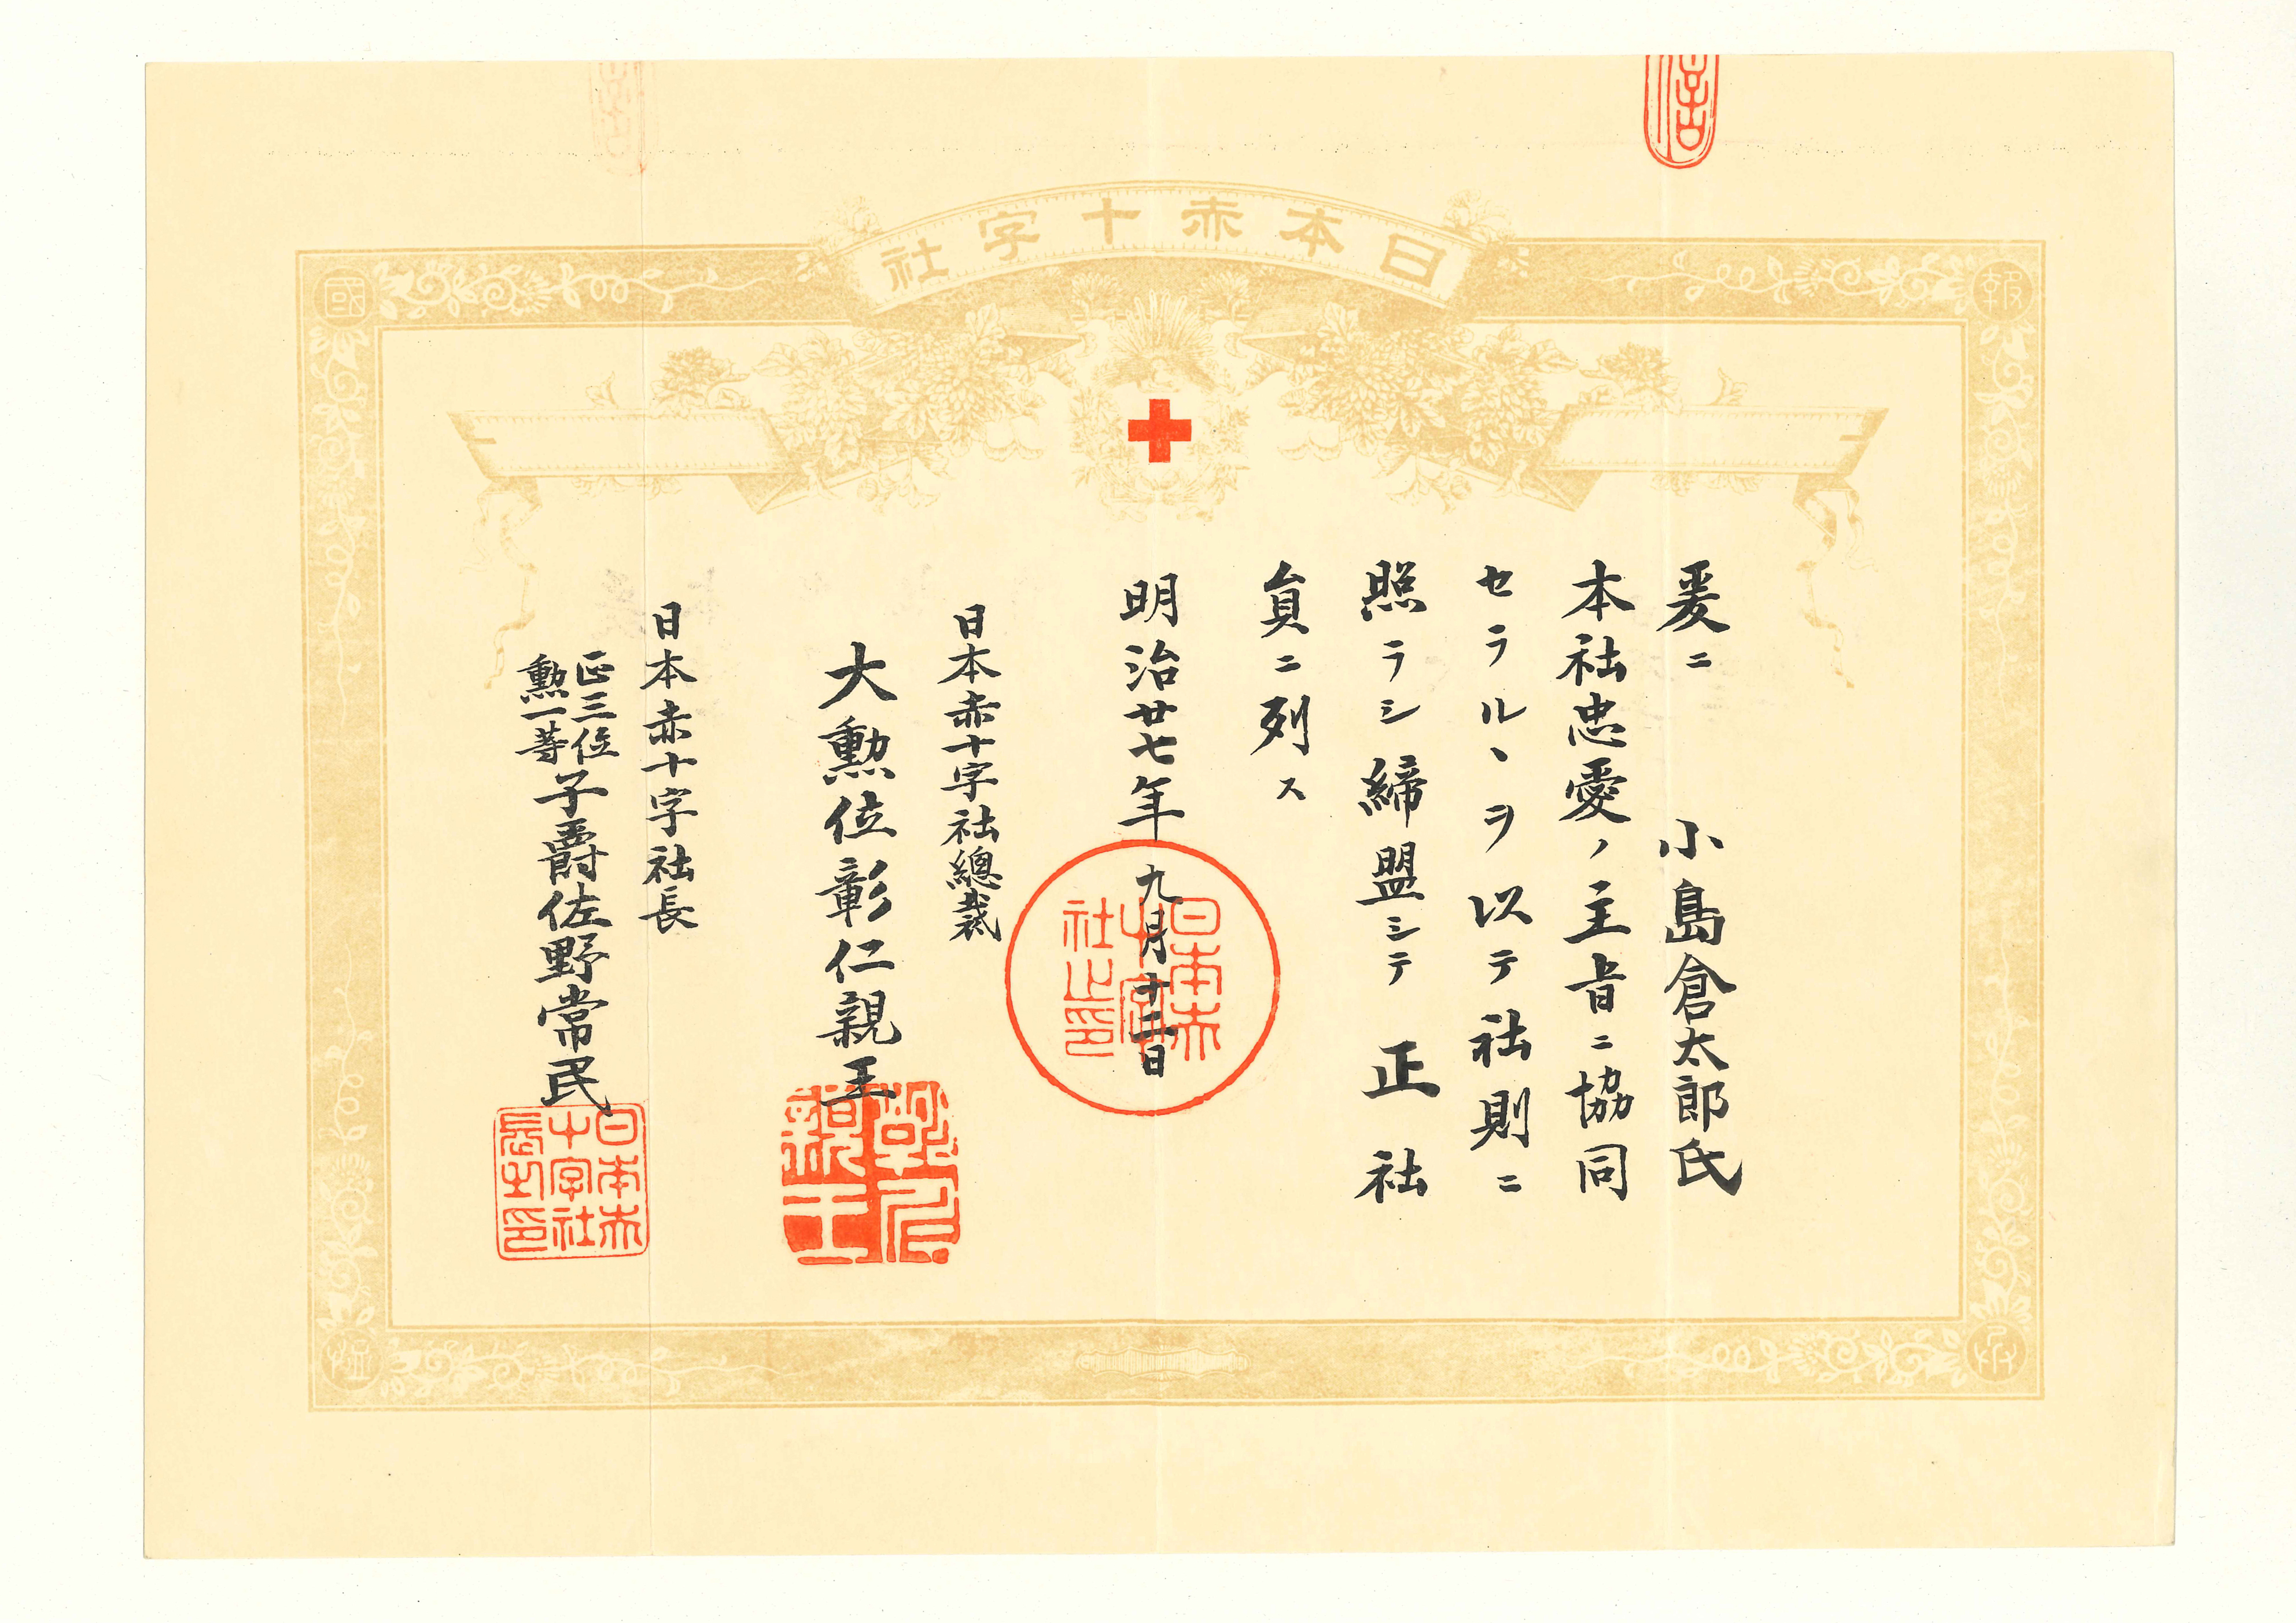 日本赤十字社
報
國
恤
兵
爰ニ 小島倉太郎氏
本社忠愛ノ主旨ニ協同
セラルヽヲ以テ社則ニ
照ラシ締盟シテ正社
員ニ列ス
明治廿七年九月十二日
日本赤十字社之印
日本赤十字社總裁
大勲位彰仁親王
彰仁親王
日本赤十字社長
正三位
勲一等
子爵佐野常民
日本赤十字社長之印